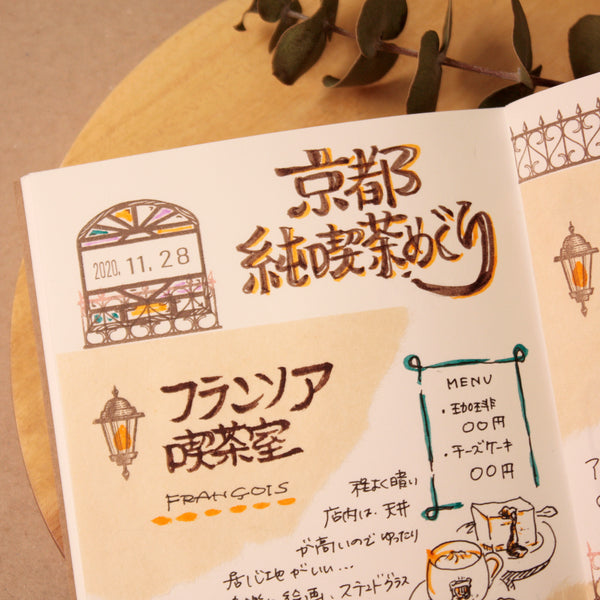 京都
純喫茶めぐり
2020.11.28
フランソア
喫茶室
FRANÇOIS
MENU
・珈琲
〇〇円
・チーズケーキ
〇〇円
程よく暗い
店内は、天井
が高いので ゆったり
居心地がいい…
絵画、ステンドグラス